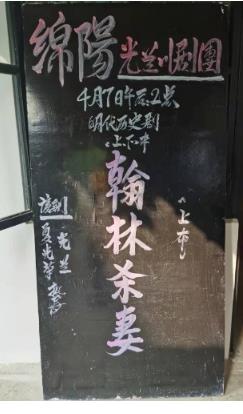 綿陽光兰川剧團
4月7日午后2点
明代历史剧
《上下本》
翰林杀妻
《上本》
光兰
夏光荣